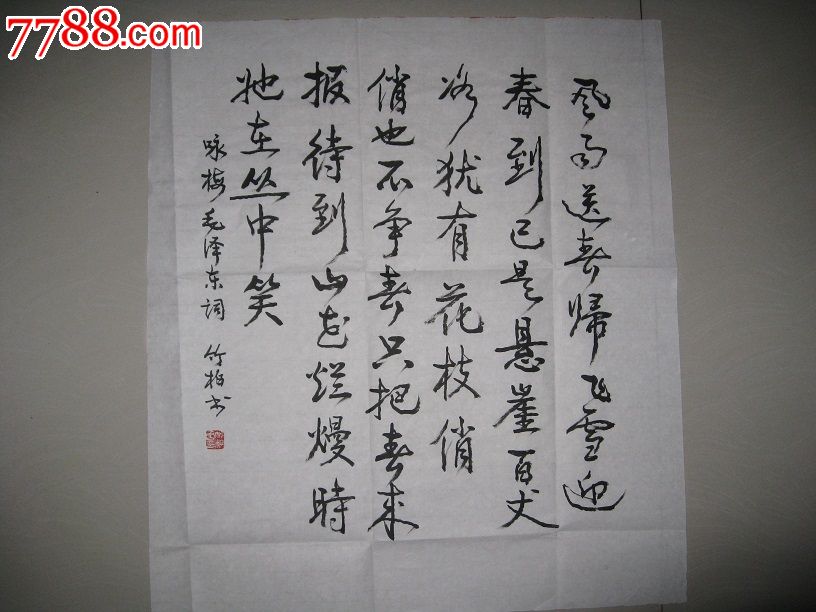 7788.com
风雨送春歸飞雪迎
春到已是悬崖百丈
冰犹有花枝俏
俏也不争春只把春来
报待到山花烂熳時
她在丛中笑
咏梅毛泽东词 竹梅书